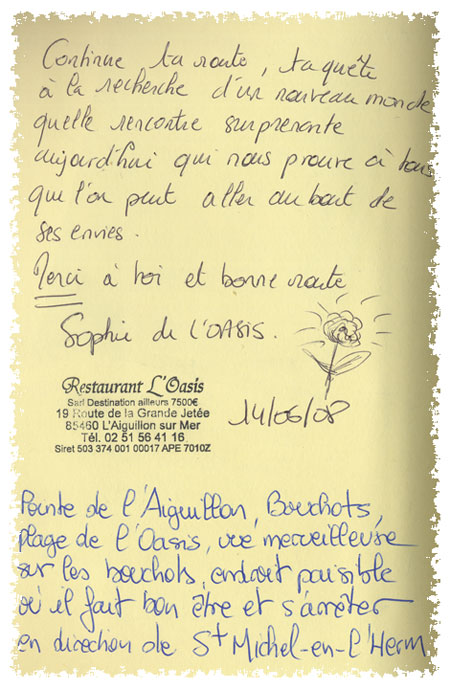 Continue ta route, ta quête
à la recherche d'un nouveau monde
quelle rencontre surprenante
aujourd'hui qui nous prouve à tous
que l'on peut aller au bout de
ses envies.
Merci à toi et bonne route
Sophie de L'OASIS.
14/06/08
Restaurant L'Oasis
Sarl Destination ailleurs 7500€
19 Route de la Grande Jetée
85460 L'Aiguillon sur Mer
Tél. 02 51 56 41 16
Siret 503 374 001 00017 APE 7010Z
Pointe de l'Aiguillon, Bouchots,
plage de l'Oasis, vue merveilleuse
sur les bouchots, endroit paisible
où il fait bon être et s'arrêter
en direction de St Michel-en-l'Herm